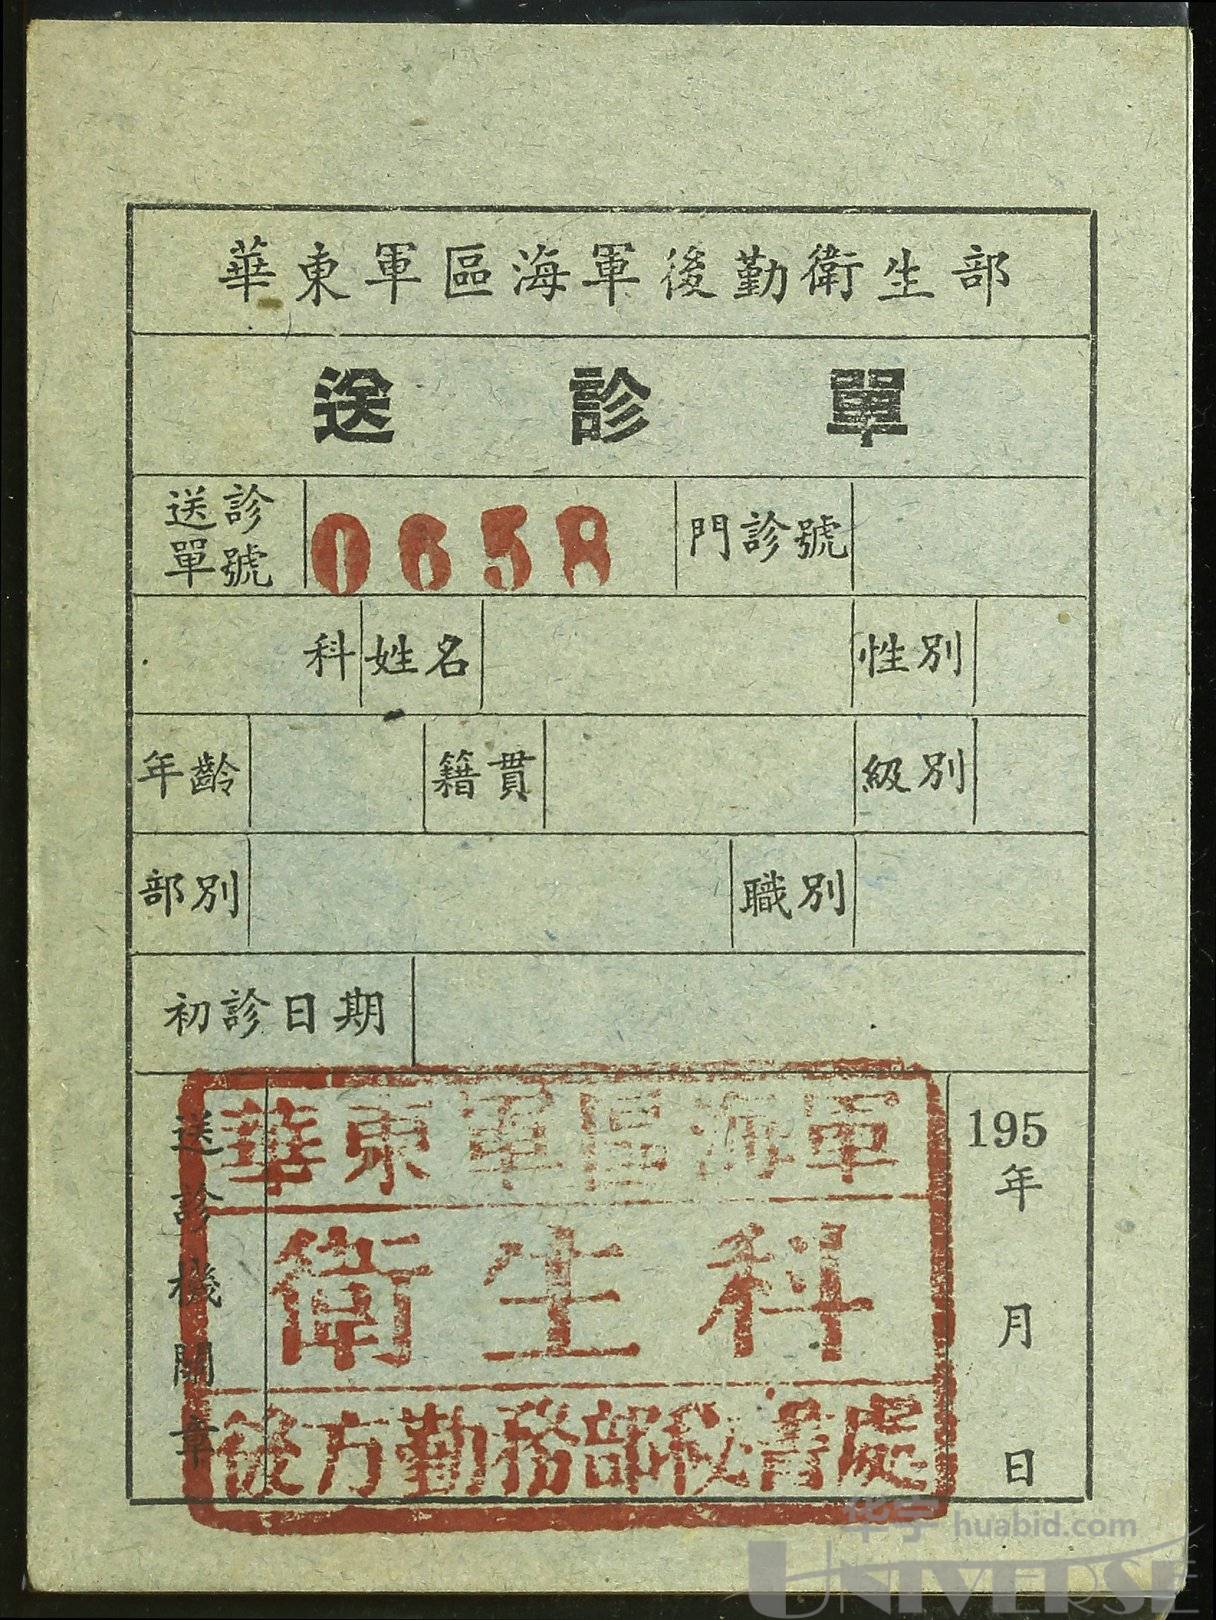 華東軍區海軍後勤衛生部
送診單
送診單號 0658 門診號
科 姓名 性別
年齡 籍貫 級別
部別 職別
初診日期
送診機關章
華東軍區海軍
衛生科
後方勤務部秘書處
195
年
月
日
华宇 huabid.com
UNIVERSE